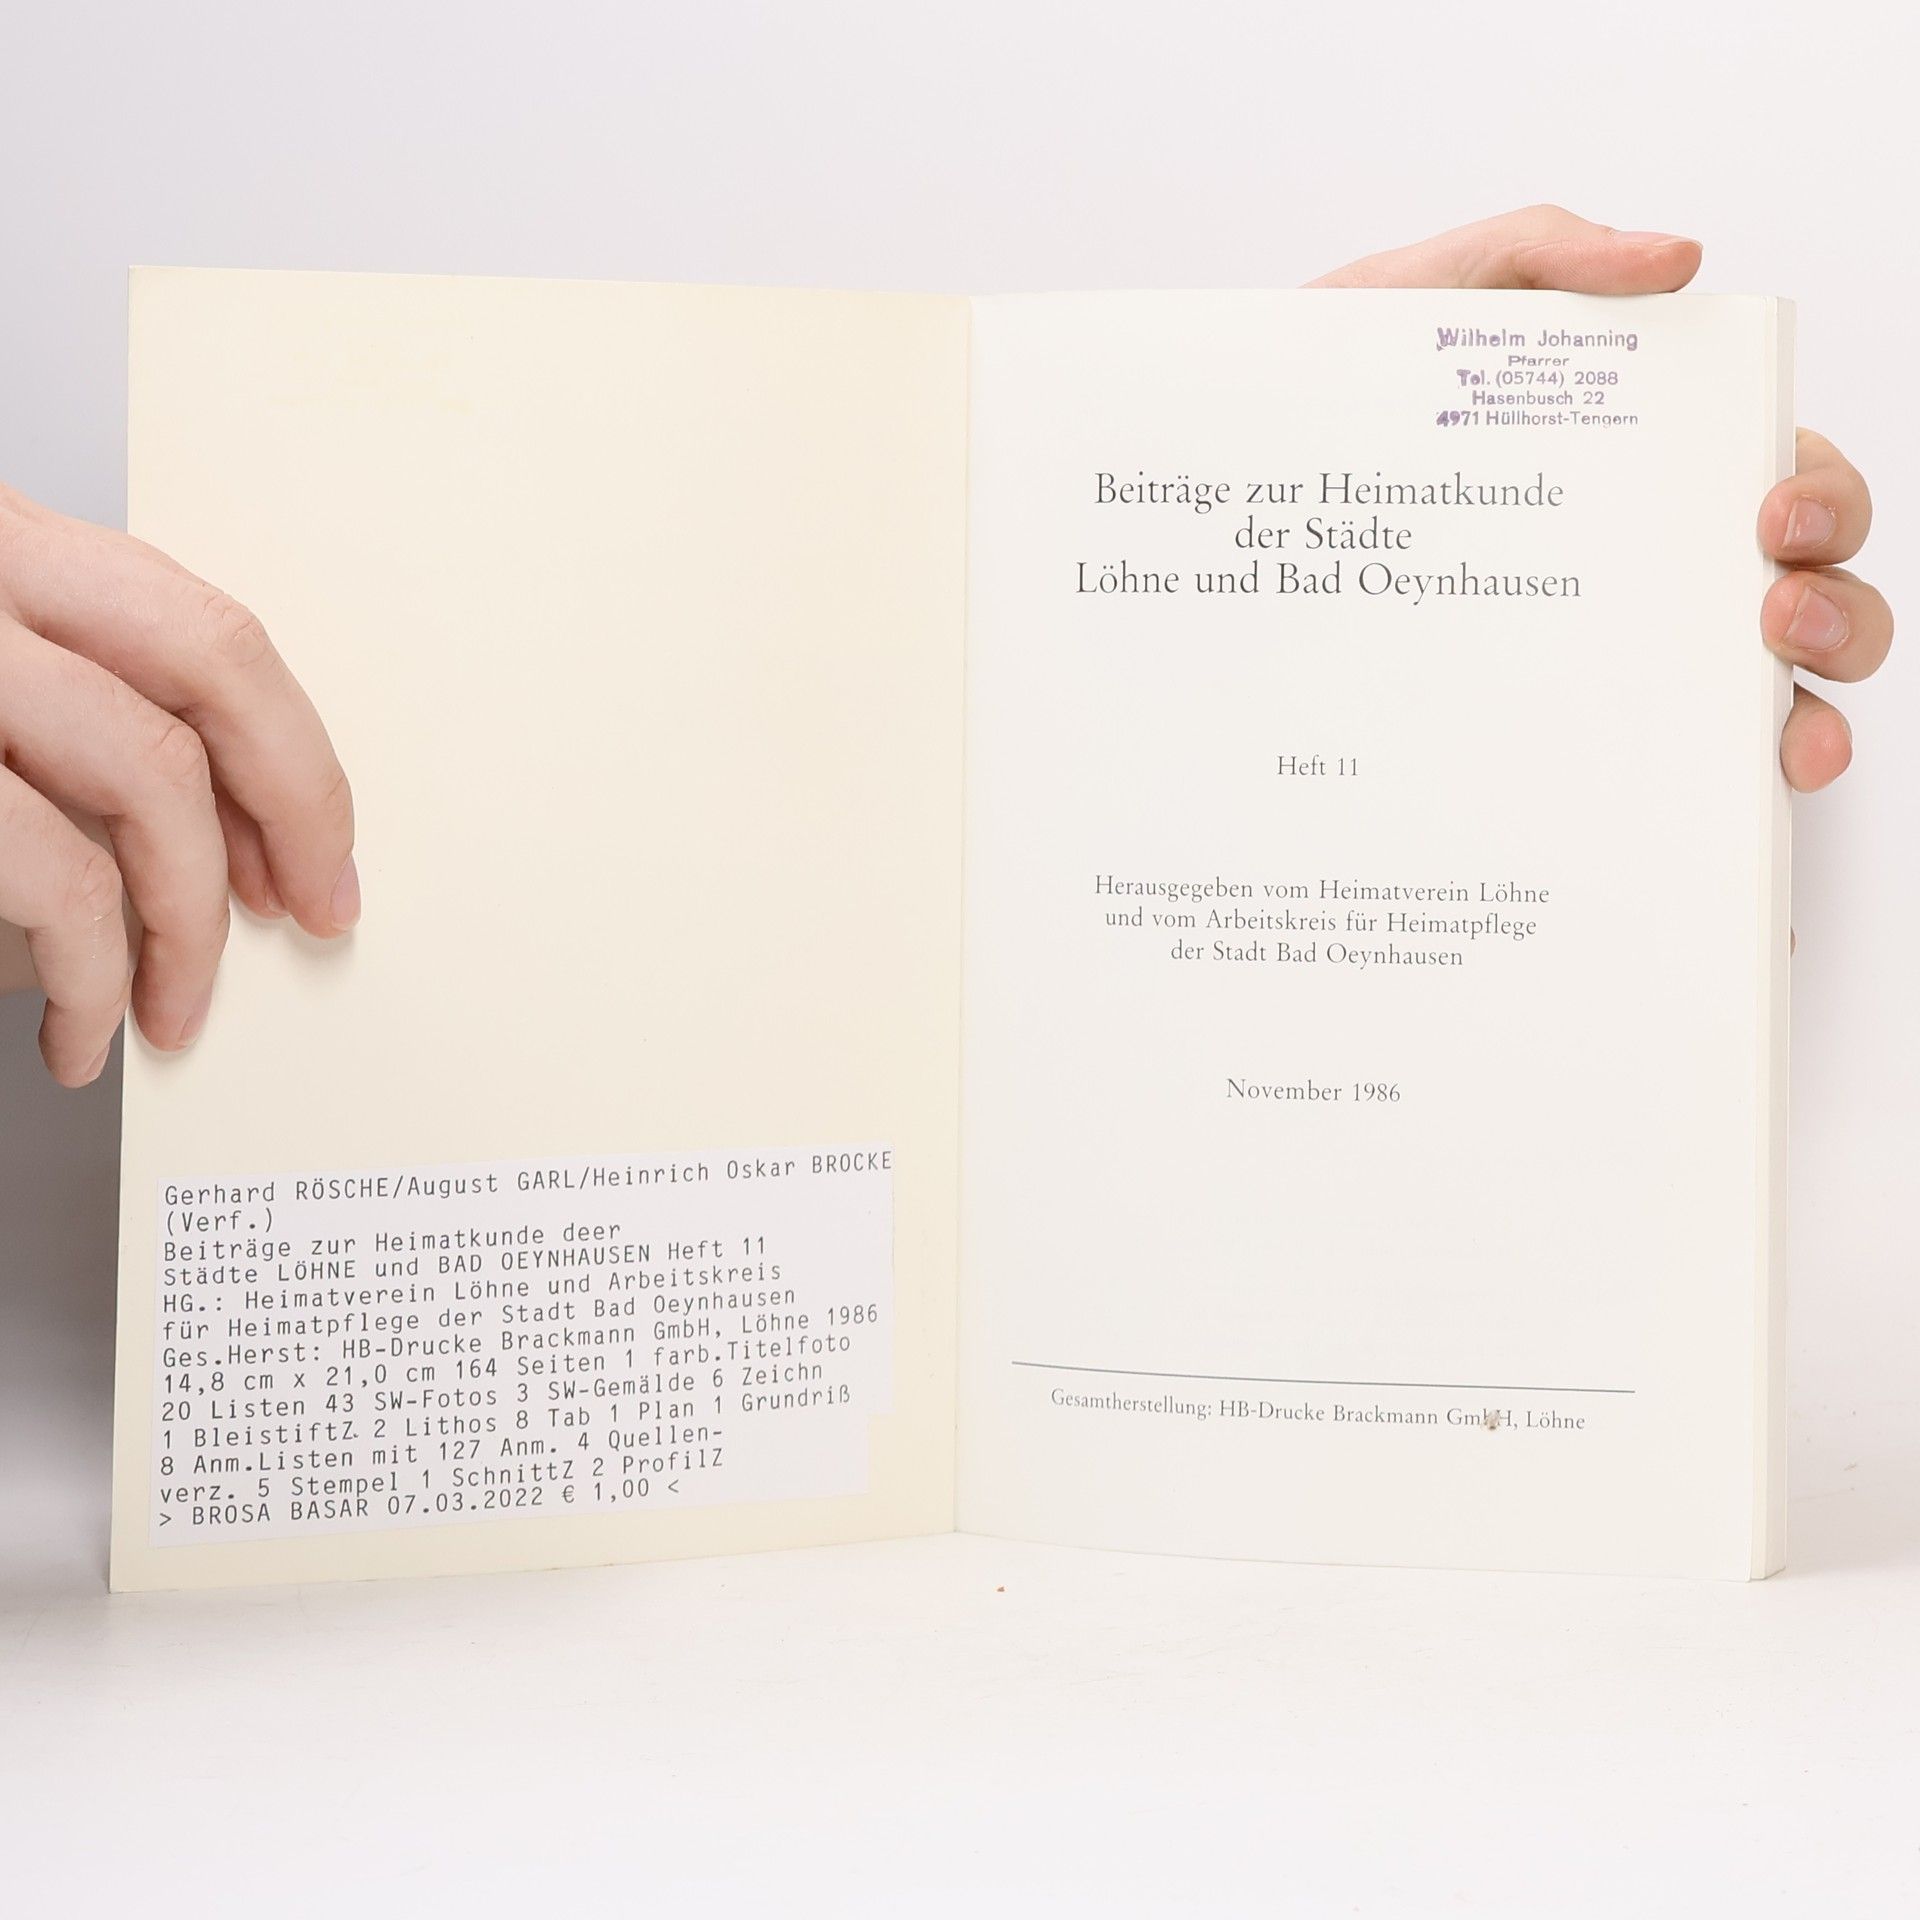 Gerhard RÖSCHE/August GARL/Heinrich Oskar BROCKE
(Verf.)
Beiträge zur Heimatkunde deer
Städte LÖHNE und BAD OEYNHAUSEN Heft 11
HG.: Heimatverein Löhne und Arbeitskreis
für Heimatpflege der Stadt Bad Oeynhausen
Ges.Herst: HB-Drucke Brackmann GmbH, Löhne 1986
14,8 cm x 21,0 cm 164 Seiten 1 farb.Titelfoto
20 Listen 43 SW-Fotos 3 SW-Gemälde 6 Zeichn
1 BleistiftZ. 2 Lithos 8 Tab 1 Plan 1 Grundriß
8 Anm.Listen mit 127 Anm. 4 Quellen-
verz. 5 Stempel 1 SchnittZ 2 ProfilZ
> BROSA BASAR 07.03.2022 € 1,00 <
Wilhelm Johanning
Pfarrer
Tel. (05744) 2088
Hasenbusch 22
4971 Hüllhorst-Tengern
Beiträge zur Heimatkunde
der Städte
Löhne und Bad Oeynhausen
Heft 11
Herausgegeben vom Heimatverein Löhne
und vom Arbeitskreis für Heimatpflege
der Stadt Bad Oeynhausen
November 1986
Gesamtherstellung: HB-Drucke Brackmann GmbH, Löhne